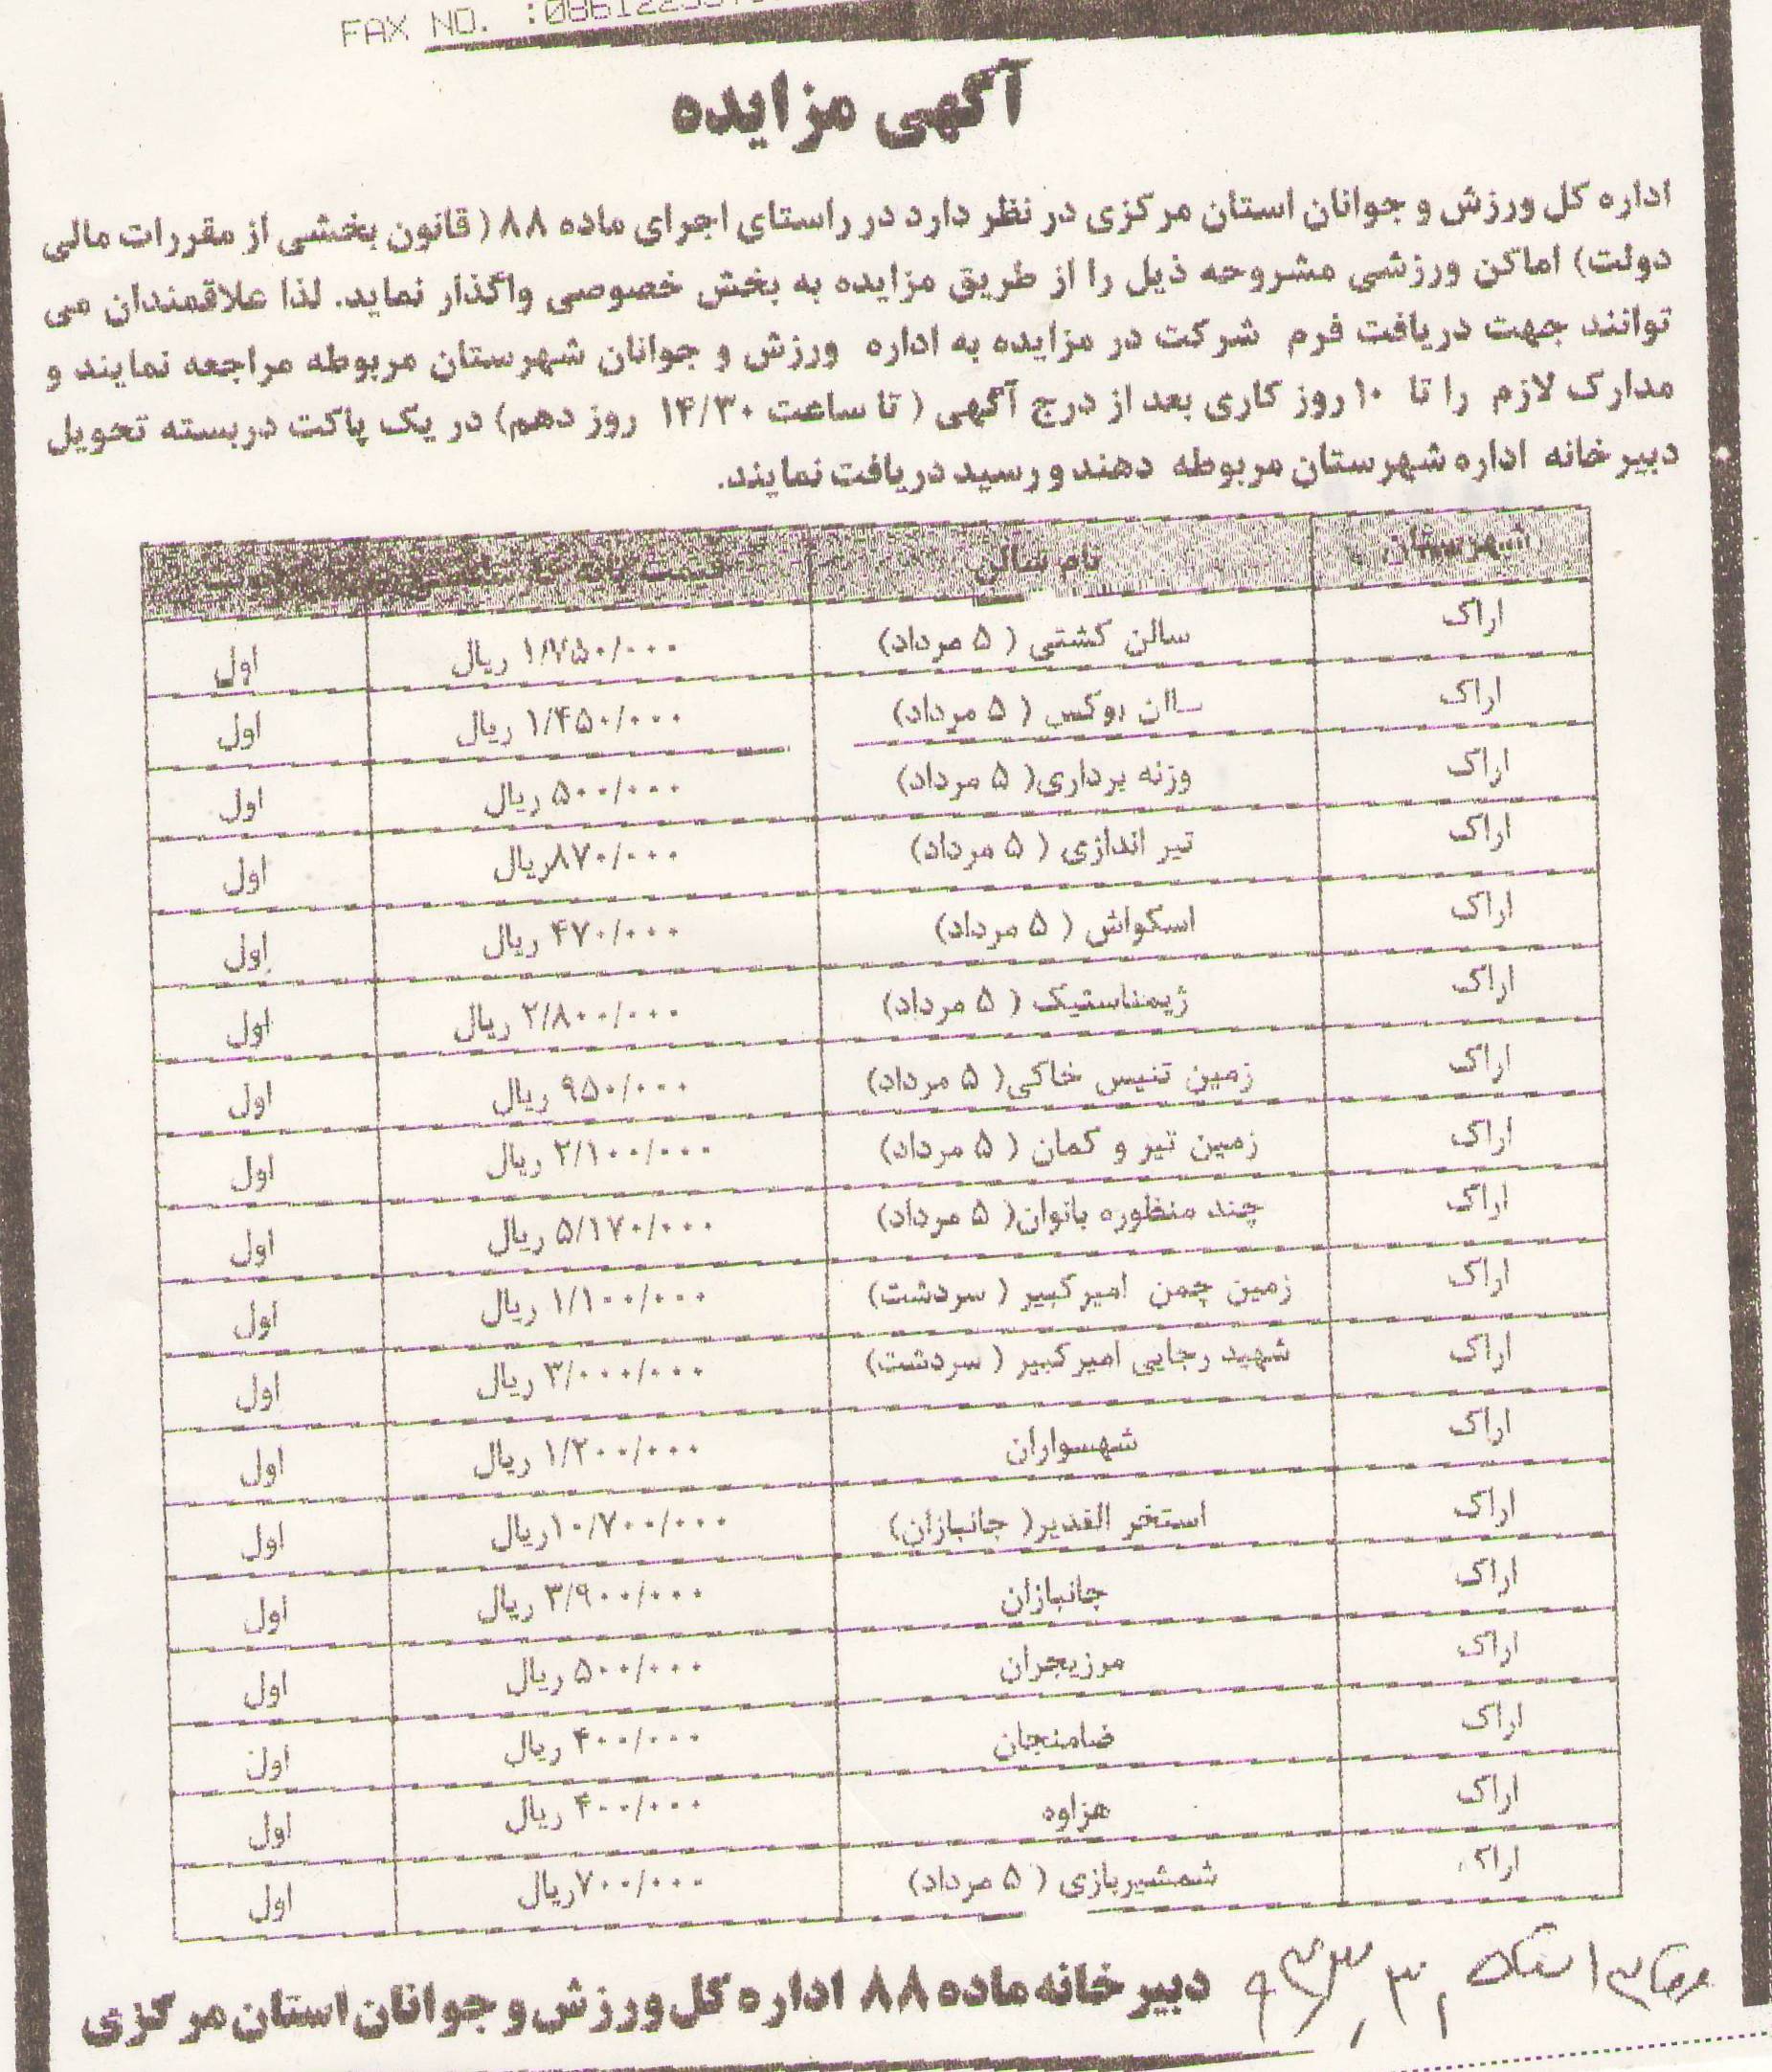 FAX NO. :
آگهی مزایده
اداره کل ورزش و جوانان استان مرکزی در نظر دارد در راستای اجرای ماده ۸۸ ( قانون بخشی از مقررات مالی
دولت) اماکن ورزشی مشروحه ذیل را از طریق مزایده به بخش خصوصی واگذار نماید. لذا علاقمندان می
توانند جهت دریافت فرم شرکت در مزایده به اداره ورزش و جوانان شهرستان مربوطه مراجعه نمایند و
مدارک لازم را تا ۱۰ روز کاری بعد از درج آگهی ( تا ساعت ۱۴/۳۰ روز دهم) در یک پاکت دربسته تحویل
دبیرخانه اداره شهرستان مربوطه دهند و رسید دریافت نمایند.
شهرستان نام سالن قیمت پایه کارشناسی نوبت
اراک سالن کشتی ( ۵ مرداد) ۱/۷۵۰/۰۰۰ ریال اول
اراک سالن بوکس ( ۵ مرداد) ۱/۴۵۰/۰۰۰ ریال اول
اراک وزنه برداری( ۵ مرداد) ۵۰۰/۰۰۰ ریال اول
اراک تیر اندازی ( ۵ مرداد) ۸۷۰/۰۰۰ریال اول
اراک اسکواش ( ۵ مرداد) ۴۷۰/۰۰۰ ریال اول
اراک ژیمناستیک ( ۵ مرداد) ۲/۸۰۰/۰۰۰ ریال اول
اراک زمین تنیس خاکی( ۵ مرداد) ۹۵۰/۰۰۰ ریال اول
اراک زمین تیر و کمان ( ۵ مرداد) ۲/۱۰۰/۰۰۰ ریال اول
اراک چند منظوره بانوان( ۵ مرداد) ۵/۱۷۰/۰۰۰ ریال اول
اراک زمین چمن امیرکبیر ( سردشت) ۱/۱۰۰/۰۰۰ ریال اول
اراک شهید رجایی امیرکبیر ( سردشت) ۳/۰۰۰/۰۰۰ ریال اول
اراک شهسواران ۱/۲۰۰/۰۰۰ ریال اول
اراک استخر الغدیر( جانبازان) ۱۰/۷۰۰/۰۰۰ریال اول
اراک جانبازان ۳/۹۰۰/۰۰۰ ریال اول
اراک مرزیجران ۵۰۰/۰۰۰ ریال اول
اراک ضامنجان ۴۰۰/۰۰۰ ریال اول
اراک هزاوه ۴۰۰/۰۰۰ ریال اول
اراک شمشیربازی ( ۵ مرداد) ۷۰۰/۰۰۰ریال اول
دبیرخانه ماده ۸۸ اداره کل ورزش و جوانان استان مرکزی